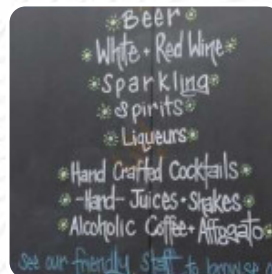 Beer
White + Red Wine
Sparkling
Spirits
Liqueurs
Hand Crafted Cocktails
-Hand- Juices + Shakes
Alcoholic Coffee + Affogato
See our friendly staff to browse